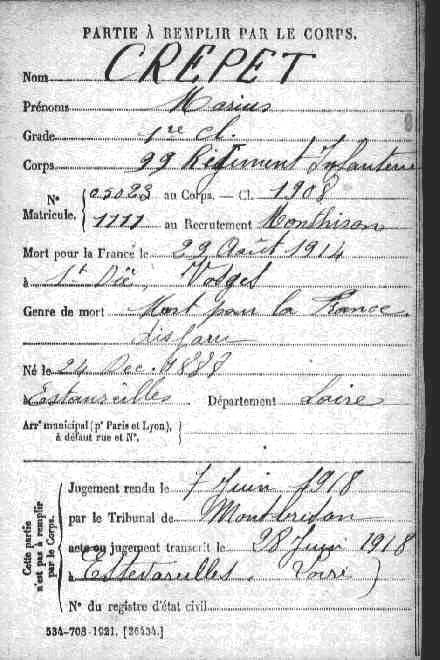 PARTIE À REMPLIR PAR LE CORPS.
Nom CREPET
Prénoms Marius
Grade 1re cl.
Corps 99 Régiment Infanterie
N° Matricule. 05023 au Corps. — Cl. 1908
1777 au Recrutement Montbrison
Mort pour la France le 29 Août 1914
à St Dié, Vosges
Genre de mort Mort pour la France.
disparu
Né le 24 Dec. 1887
à Estivareilles Département Loire
Arrt municipal (pr Paris et Lyon), à défaut rue et N°.
Cette partie n'est pas à remplir par le Corps.
Jugement rendu le 7 Juin 1918
par le Tribunal de Montbrison
acte ou jugement transcrit le 28 Juin 1918
à Estivareilles. Loire)
N° du registre d'état civil
534-708-1921. [26434.]